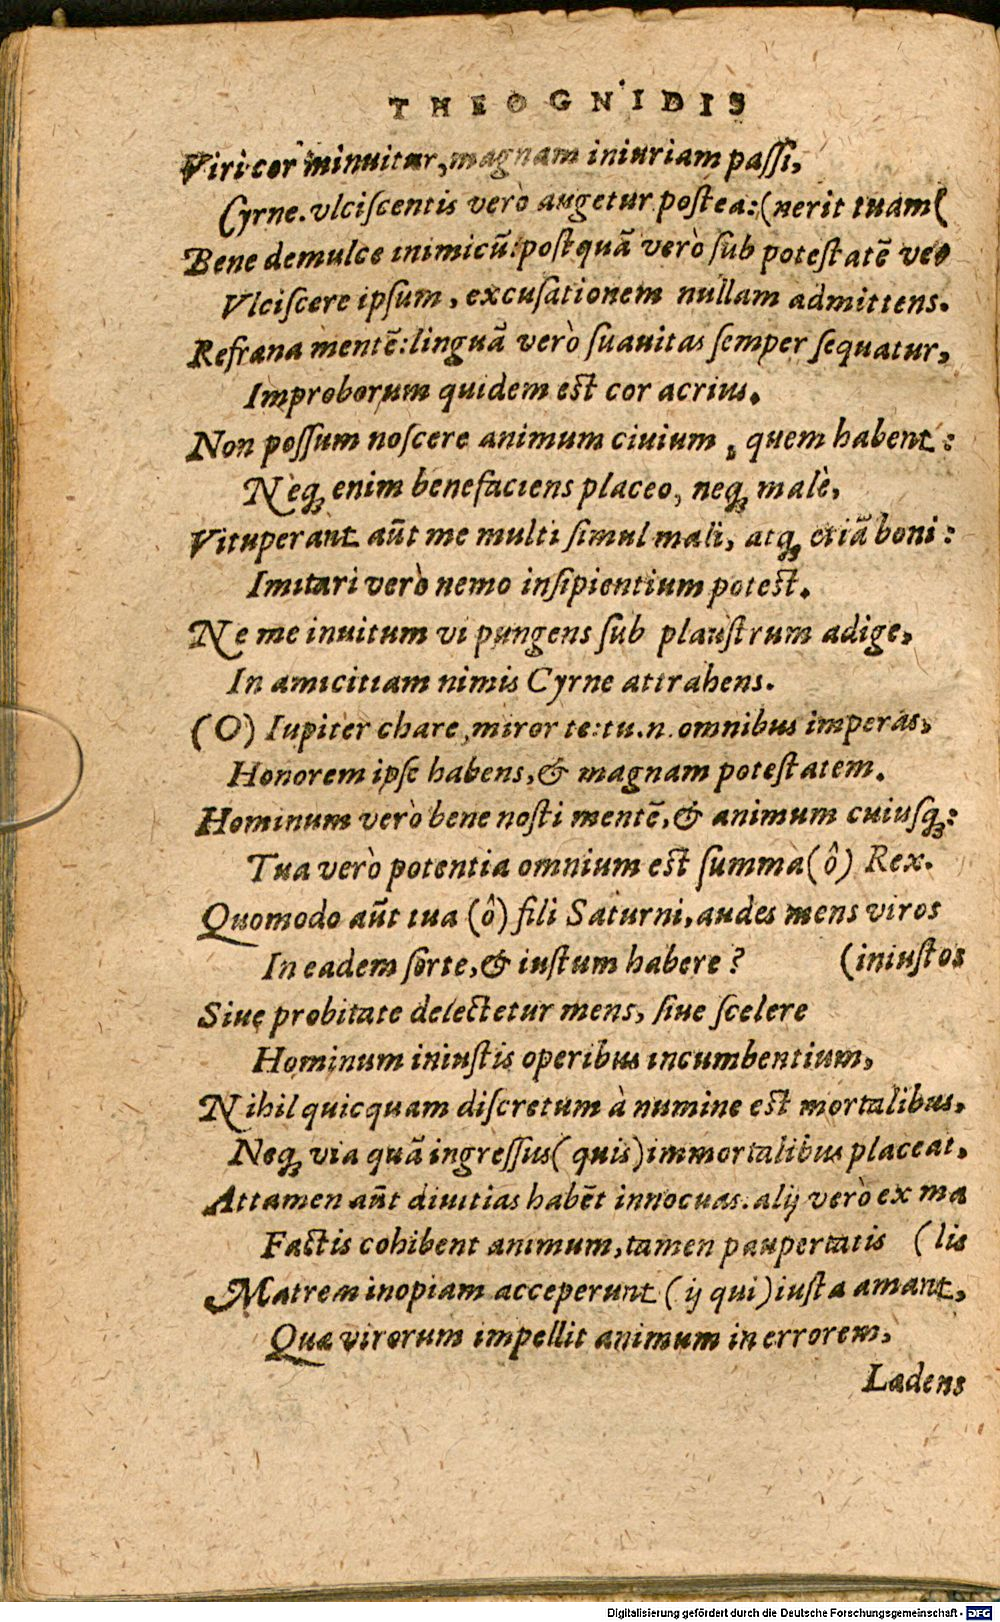 THEOGNIDIS
Viri cor minuitur, magnam iniuriam passi,
Cyrne. vlciscentis verò augetur postea: (nerit tuam (
Bene demulce inimicū: postquā verò sub potestatē ve
Vlciscere ipsum, excusationem nullam admittens.
Refrana mentē: linguā verò suauitas semper sequatur,
Improborum quidem est cor acrius.
Non possum noscere animum ciuium, quem habent:
Neq; enim benefaciens placeo, neq; malè,
Vituperant aūt me multi simul mali, atq; etiā boni:
Imitari verò nemo insipientium potest.
Ne me inuitum vi pungens sub plaustrum adige,
In amicitiam nimis Cyrne attrahens.
(O) Iupiter chare, miror te: tu.n. omnibus imperas,
Honorem ipse habens, & magnam potestatem.
Hominum verò bene nosti mentē, & animum cuiusq;:
Tua verò potentia omnium est summa (ô) Rex.
Quomodo aūt tua (ô) fili Saturni, audes mens viros
In eadem sorte, & iustum habere? (iniustos
Siue probitate delectetur mens, siue scelere
Hominum iniustis operibus incumbentium,
Nihil quicquam discretum à numine est mortalibus,
Neq; via quā ingressus (quis) immortalibus placeat.
Attamen aūt diuitias habēt innocuas. alij verò ex ma
Factis cohibent animum, tamen paupertatis (lis
Matrem inopiam acceperunt (ij qui) iusta amant,
Quæ virorum impellit animum in errorem,
Lædens
Digitalisierung gefördert durch die Deutsche Forschungsgemeinschaft - DFG